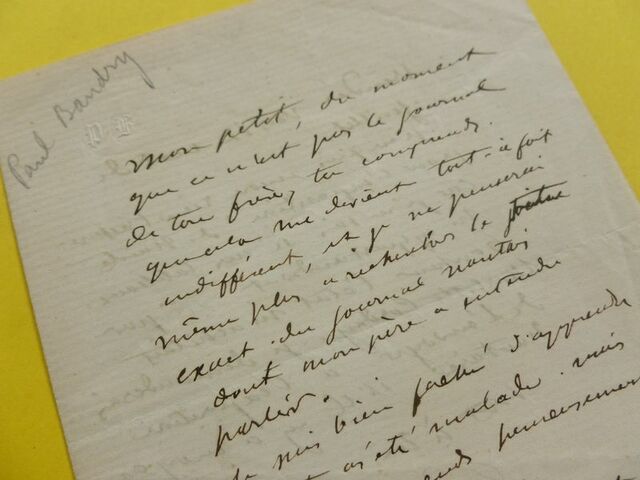 Paul Baudry
P B
Mon petit, du moment
que ce n'est pas le journal
de ton frère, tu comprends
que cela me devient tout-à-fait
indifférent, et je ne penserai
même plus à rechercher le titre
exact du journal nantais
dont mon père a entendu
parler.
Je suis bien fâché d'apprendre
as été malade mais